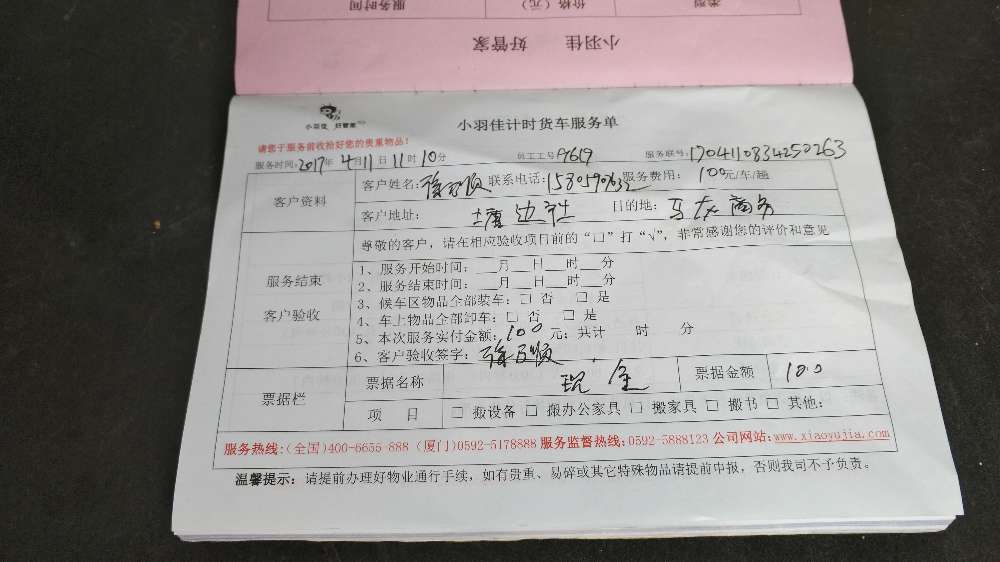 类型 价格（元） 服务时间
小羽佳 好管家
小羽佳 好管家
小羽佳计时货车服务单
请您于服务前收拾好您的贵重物品！
服务时间：2017年 4月 11日 11时 10分 员工工号 9619 服务联号：1704110834250263
客户资料
客户姓名： 联系电话： 服务费用： 100元/车/趟
客户地址： 塘边社 目的地： 商务
尊敬的客户，请在相应验收项目前的“口”打“√”，非常感谢您的评价和意见
服务结束
客户验收
1、服务开始时间：___月___日___时___分
2、服务结束时间：___月___日___时___分
3、候车区物品全部装车：□ 否 □ 是
4、车上物品全部卸车：□ 否 □ 是
5、本次服务实付金额：100 元；共计 时 分
6、客户验收签字：
票据栏
票据名称 现金 票据金额 100
项 目 □ 搬设备 □ 搬办公家具 □ 搬家具 □ 搬书 □ 其他：
服务热线：(全国)400-6655-888 (厦门)0592-5178888 服务监督热线：0592-5888123 公司网站：www.xiaoyujia.com
温馨提示：请提前办理好物业通行手续，如有贵重、易碎或其它特殊物品请提前申报，否则我司不予负责。